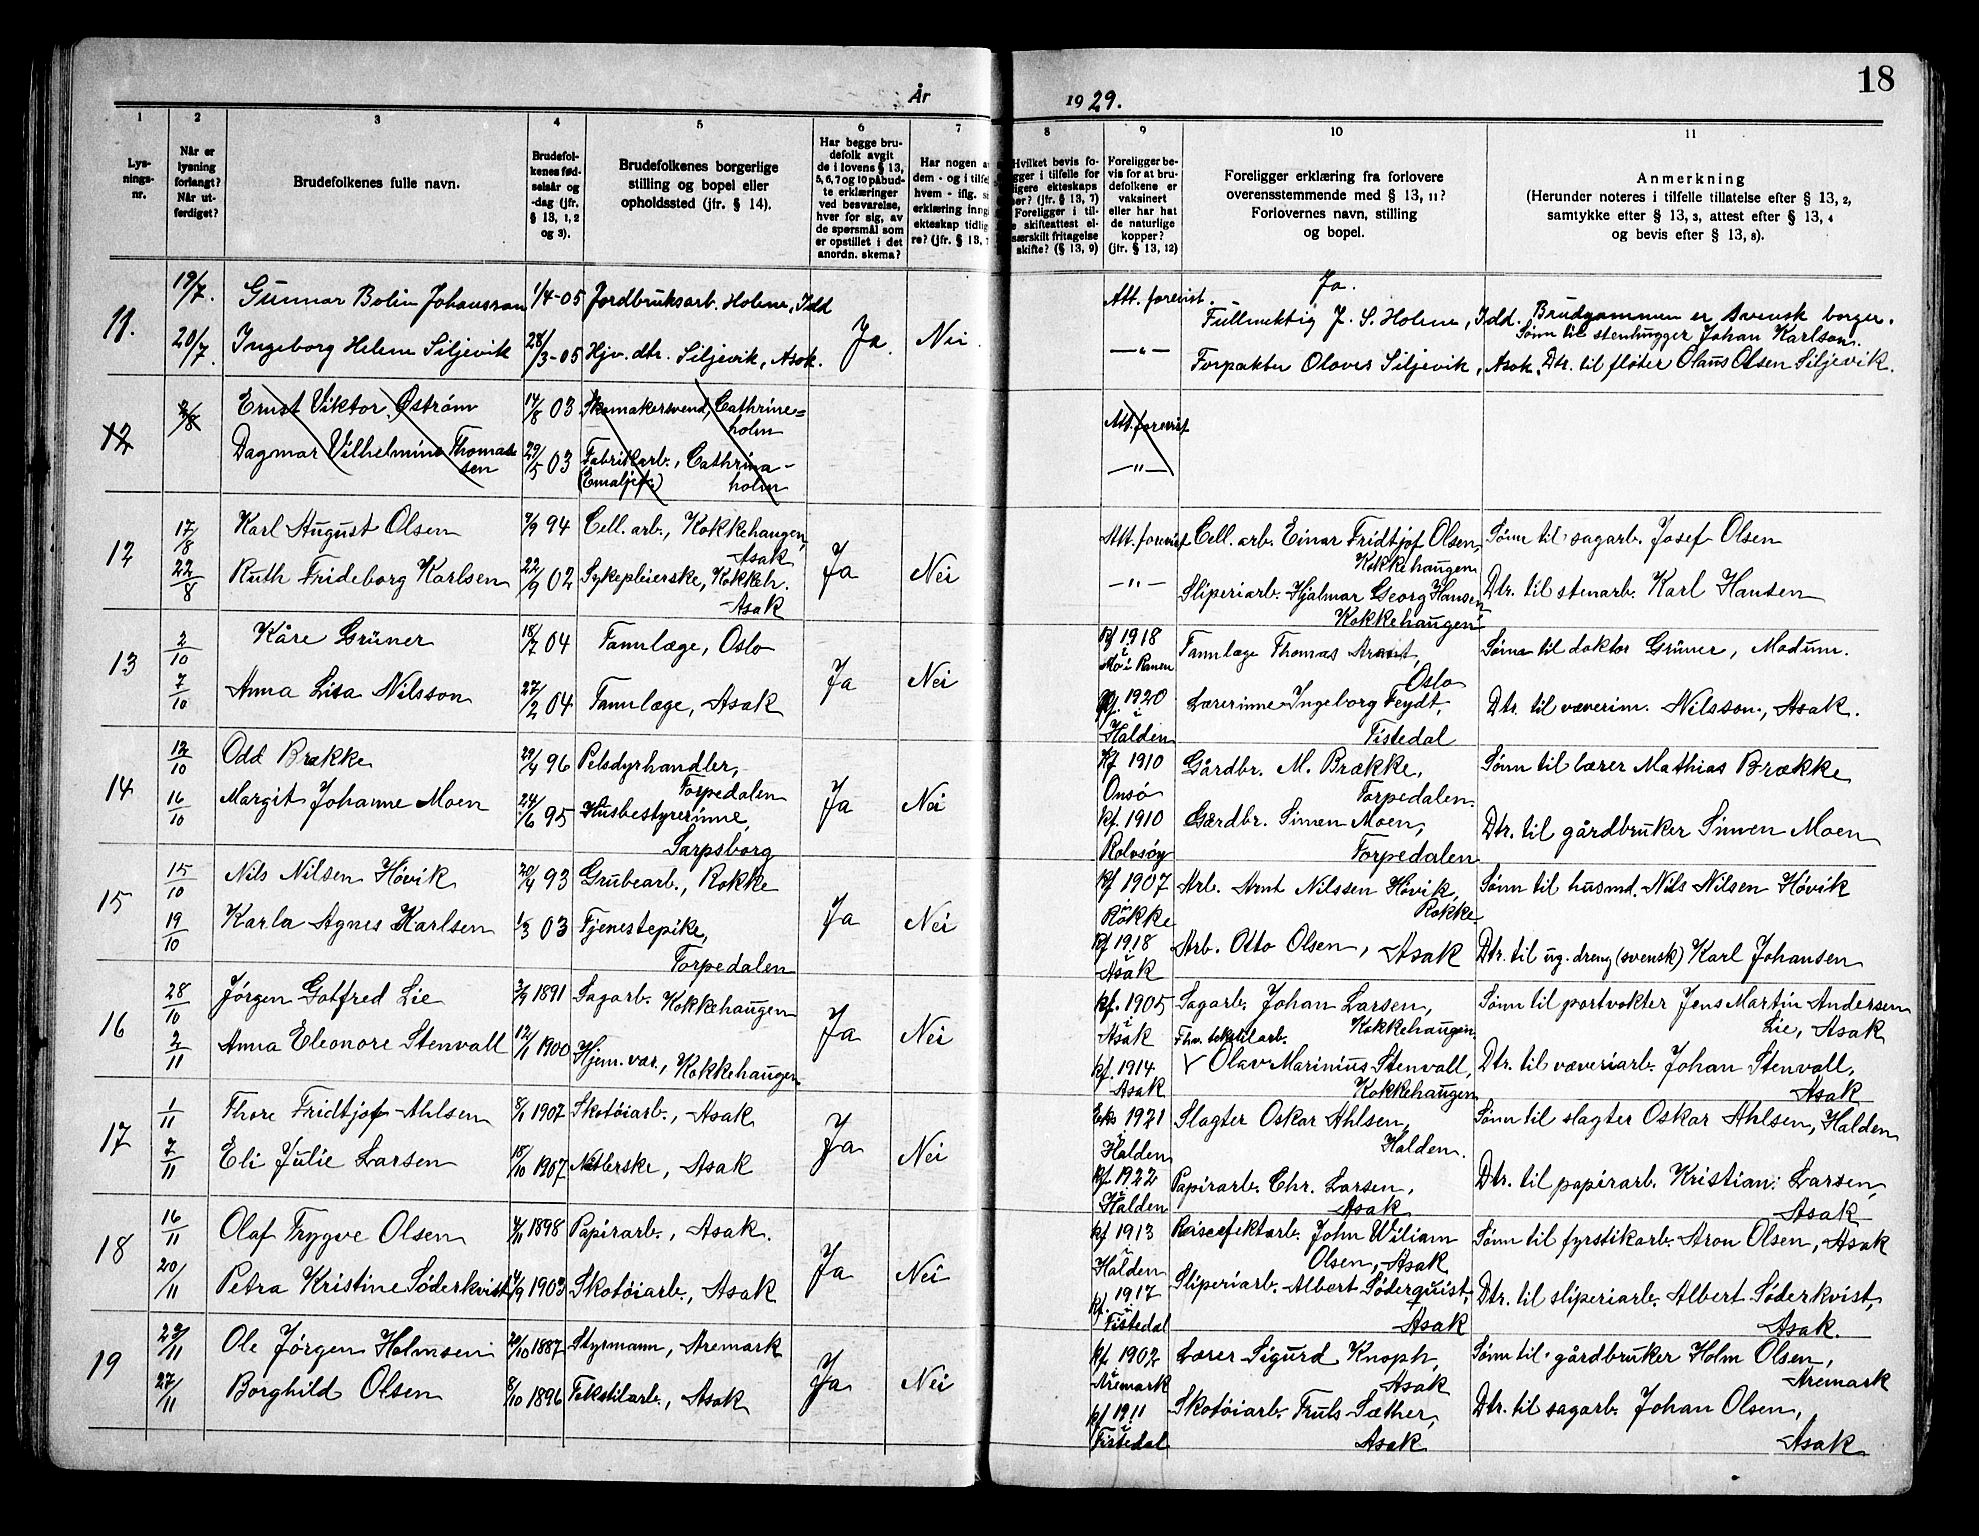 18
År 1929.
1 2 3 4 5 6 7 8 9 10 11
Lys-
nings-
nr.
Når er
lysning
forlangt?
Når ut-
ferdiget?
Brudefolkenes fulle navn.
Brudefol-
kenes fød-
selsår og
-dag (jfr.
§ 13, 1, 2
og 3).
Brudefolkenes borgerlige
stilling og bopel eller
opholdssted (jfr. § 14).
Har begge bru-
defolk avgit
de i lovens § 13,
5, 6, 7 og 10 påbud-
te erklæringer
ved besvarelse,
hver for sig, av
de spørsmål som
er opstillet i det
anordn. skema?
Har nogen a
dem - og i tilfel
hvem - iflg. si
erklæring inngå
ekteskap tidlig
re? (jfr. § 13, 7
Hvilket bevis fo-
gger i tilfelle for
ligere ekteskaps
ner? (jfr. § 13, 7)
Foreligger i til-
e skifteattest el-
særskilt fritagelse
skifte? (§ 13, 9)
Foreligger be-
vis for at bru-
defolkene er
vaksinert
eller har hat
de naturlige
kopper?
(jfr. § 13, 12)
Foreligger erklæring fra forlovere
overensstemmende med § 13, 11?
Forlovernes navn, stilling
og bopel.
Anmerkning
(Herunder noteres i tilfelle tillatelse efter § 13, 2,
samtykke efter § 13, 3, attest efter § 13, 4
og bevis efter § 13, 8).
11. 19/7. Gunnar Bolin Johansson 1/4-05 Jordbruksarb. Holene, Idd Att. forevist. Ja.
Fullmektig J. S. Holene, Idd. Brudgommen er svensk borger.
Sønn til stenhugger Johan Karlson.
20/7. Ingeborg Helene Siljevik 28/3-05 Hjv. dtr. Siljevik, Asak. Ja. Nei. —"— Forpakter Olaves Siljevik, Asak. Dtr. til fløter Olaus Olsen Siljevik.
12 2/8 Ernst Viktor Øström 14/8 03 Skomakersvend, Cathrine=
holm Att. forevist
Dagmar Vilhelmine Thomas
sen 29/5 03 Fabrikarb., Cathrina-
(Emaljef.) holm —"—
12 17/8 Karl August Olsen 9/9 94 Cell. arb., Kokkehaugen,
Asak Att. forevist Cell. arb. Einar Fridtjof Olsen,
Kokkehaugen Sønn til sagarb. Josef Olsen
22/8 Ruth Frideborg Karlsen 22/9 02 Sykepleierske, Kokkeh.
Asak Ja Nei —"— Sliperiarb. Hjalmar Georg Hansen
Kokkehaugen Dtr. til stenarb. Karl Hansen
13 2/10 Kåre Grüner 18/7 04 Tannlæge, Oslo Kf 1918
i
Mo i Ranen Tannlæge Thomas
Oslo Sønn til doktor Grüner, Modum.
7/10 Anna Lisa Nilsson 27/2 04 Tannlæge, Asak Ja Nei Kf. 1920
i
Halden Lærerinne Ingeborg Feydt,
Tistedal Dtr. til væverim. Nilsson, Asak.
14 12/10 Odd Brække 29/4 96 Pelsdyrhandler,
Torpedalen Kf 1910
Onsø Gårdbr. M. Brække,
Torpedalen. Sønn til lærer Mathias Brække
16/10 Margit Johanne Moen 24/6 95 Husbestyrerinne,
Sarpsborg Ja Nei kf. 1910
Rolvsøy Gårdbr. Simen Moen,
Torpedalen Dtr. til gårdbruker Simen Moen
15 15/10 Nils Nilsen Høvik 20/4 93 Grubearb., Rokke Kf 1907
i
Rokke Arb. Arnt Nilssen Høvik,
Rokke Sønn til husmd. Nils Nilsen Høvik
19/10 Karla Agnes Karlsen 1/3 03 Tjenestepike,
Torpedalen Ja Nei Kf 1918
i
Asak Arb. Otto Olsen, Asak Dtr. til ug. dreng (svensk) Karl Johansen
16 28/10 Jørgen Gotfred Lie 3/9 1891 Sagarb. Kokkehaugen kf. 1905
i
Asak Sagarb. Johan Larsen,
Kokkehaugen Sønn til portvokter Jens Martin Andersen
Lie, Asak
Fhv. tekstilarb.
2/11 Anna Eleonore Stenvall 12/1 1900 Hjem. vær., Kokkehaugen Ja Nei kf. 1914
Asak Olav Marinius Stenvall,
Kokkehaugen Dtr. til væveriarb. Johan Stenvall,
Asak
17 1/11 Thore Fridtjof Ahlsen 8/1 1907 Skotøiarb., Asak 1921
i
Halden Slagter Oskar Ahlsen,
Halden. Sønn til slagter Oskar Ahlsen, Halden
7/11 Eli Julie Larsen 15/10 1907 Nåtlerske, Asak Ja Nei kf 1922
i
Halden Papirarb. Chr. Larsen,
Asak Dtr. til papirarb. Kristian Larsen,
Asak
18 16/11 Olaf Trygve Olsen 4/11 1898 Papirarb., Asak. kf 1913
i
Halden Reiseefektarb. John Wiliam
Olsen, Asak Sønn til fyrstikarb. Aron Olsen, Asak
20/11 Petra Kristine Söderkvist 4/9 1903 Skotøiarb., Asak Ja Nei kf. 1917
i
Tistedal Sliperiarb. Albert Söderquist,
Asak Dtr. til sliperiarb. Albert Söderkvist,
Asak.
19 23/11 Ole Jørgen Holmsen 20/10 1887 Styrmann, Aremark kf. 1902
i
Aremark Lærer Sigurd Knoph,
Asak Sønn til gårdbruker Holm Olsen,
Aremark
27/11 Borghild Olsen 8/10 1896 Tekstilarb., Asak Ja Nei kf 1911
i
Tistedal Skotøiarb. Truls Sæther,
Asak Dtr. til sagarb. Johan Olsen,
Asak